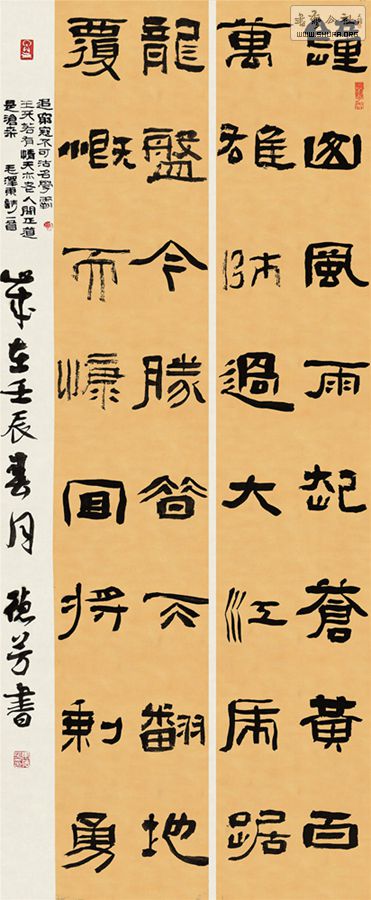 鐘山風雨起蒼黃百
萬雄師過大江虎踞
龍盤今勝昔天翻地
覆慨而慷宜將剩勇
追窮寇不可沽名學霸
王天若有情天亦老人間正道
是滄桑 毛澤東詩一首
歲在壬辰春月 德芳書